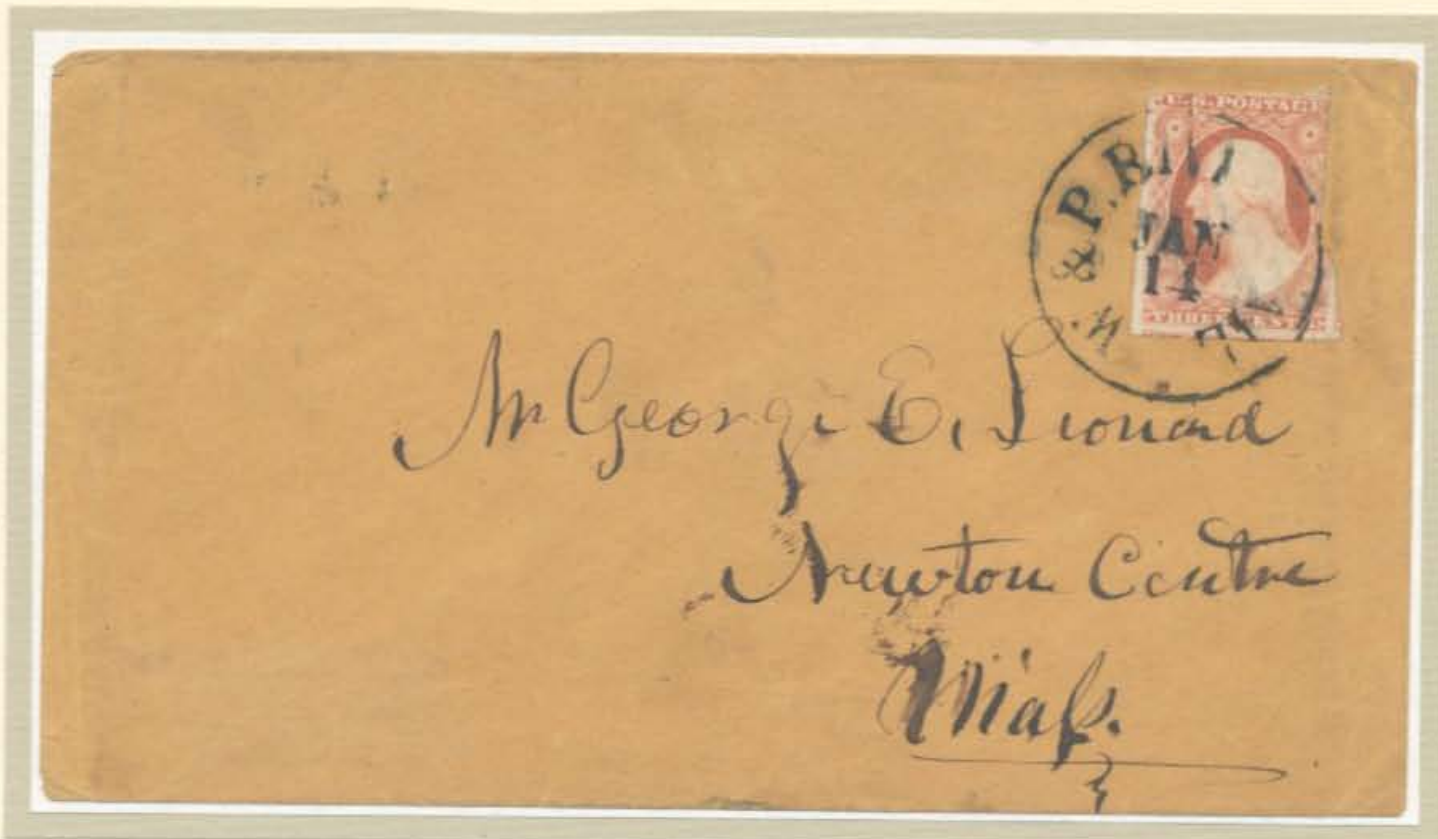 U.S. POSTAGE
W. & P. R.
JAN
14
THREE CENTS
Mr George E. Leonard
Newton Centre
Maſs.